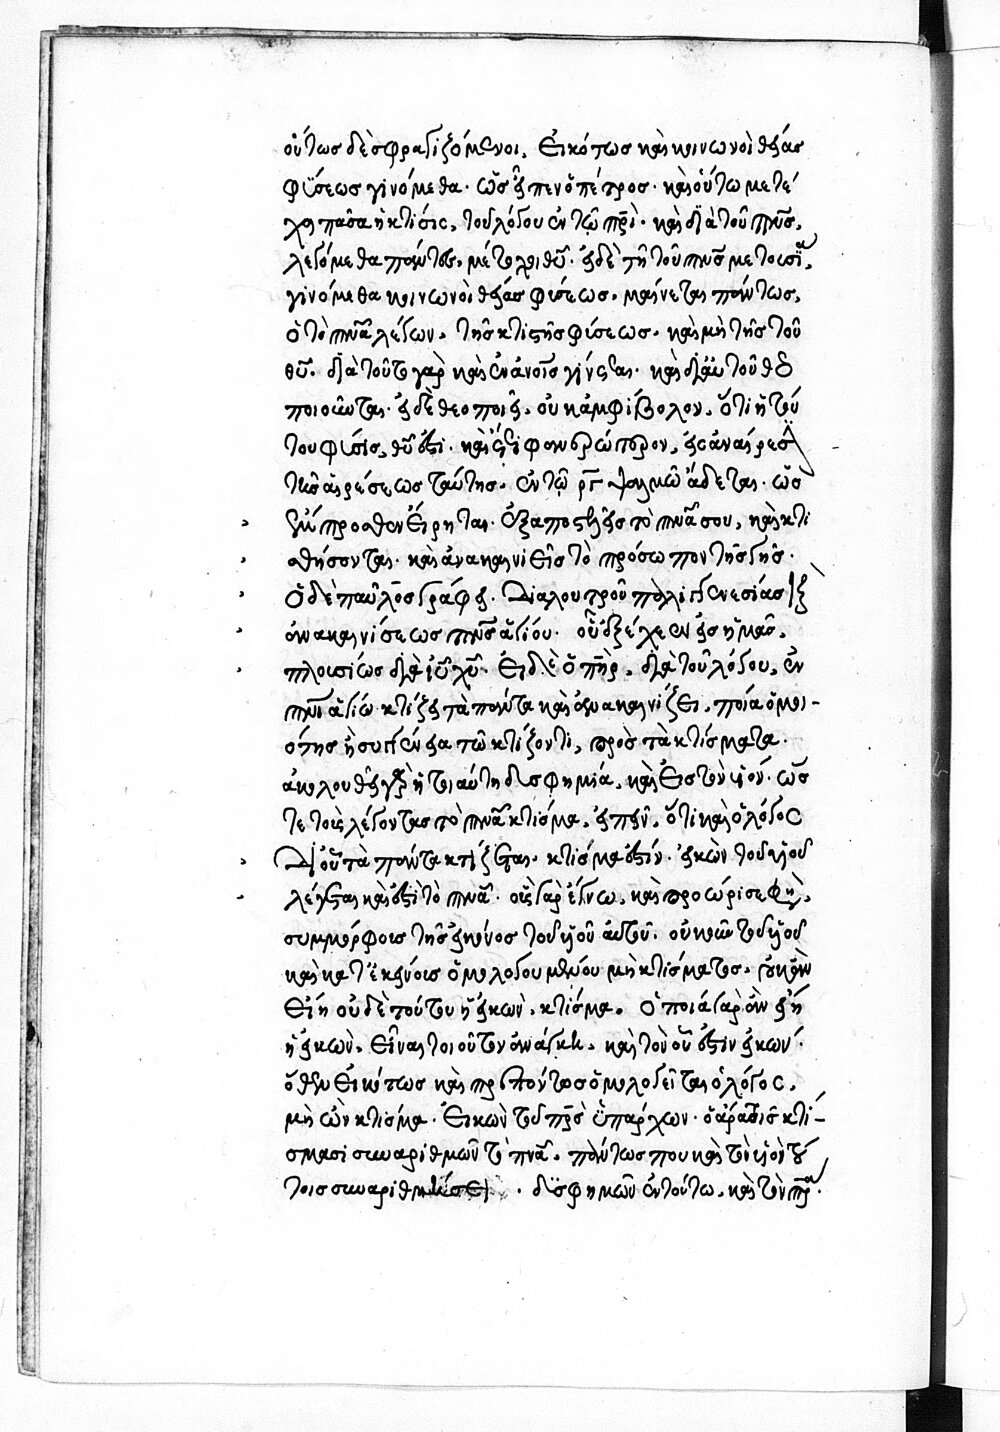 οὕτως δὲ σφραγιζόμενοι. Εἰκότως καὶ κοινωνοὶ θείας
φύσεως γινόμεθα. ὥς εἶπεν ὁ πέτρος. καὶ οὕτω μετέ
χει πᾶσα ἡ κτίσις, τοῦ λόγου ἐν τῶ πνὶ. καὶ διὰ τοῦ πνς,
λεγόμεθα πάντες, μέτοχοι θῦ. εἰ δὲ τῆ τοῦ πνς μετουσία,
γινόμεθα κοινωνοὶ θείας φύσεως. μαίνεται πάντως,
ὁ τὸ πνα λέγων, τῆς κτιστῆς φύσεως. καὶ μὴ τῆς τοῦ
θῦ. διὰ τοῦτο γὰρ καὶ ἐν οἷς γίνεται. καὶ διὰ τοῦ
ποιοῦνται. εἰ δὲ θεοποιεῖ, οὐκ ἀμφίβολον, ὅτι ἡ τού
του φύσις, θῦ ἐστὶ. καὶ ἔτι φανερώτερον, εἰς ἀναίρεσιν
τῆς αἱρέσεως ταύτης. ἐν τῶ ργ ψαλμῶ ἄδεται. ὡς
προεῖρηται. ἐξαποστελεῖς τὸ πνα σου, καὶ κτι
σθήσονται. καὶ ἀνακαινιεῖς τὸ πρόσωπον τῆς γῆς.
Ὁ δὲ παῦλος γράφει. Διὰ λουτροῦ παλιγγενεσίας καὶ
ἀνακαινίσεως πνς ἁγίου. οὗ ἐξέχεεν εἰς ἡμᾶς,
πλουσίως διὰ ιῦ χῦ. Εἰ δὲ ὁ πηρ, διὰ τοῦ λόγου, ἐν
πνι ἁγίω κτίζει τὰ πάντα καὶ ἀνακαινίζει, ποία ὁμοι-
ότης ἢ συγγένεια τῶ κτίζοντι, πρὸς τὰ κτίσματα.
ἀκολουθεῖ γὰρ ἡ τοιαύτη δυσφημία, καὶ εἰς τὸν υἱόν. ὥς
τε τοὺς λέγοντας τὸ πνα κτίσμα, εἰπεῖν, ὅτι καὶ ὁ λόγος
Δι οὗ τὰ πάντα κτίζεται. κτίσμα ἐστίν. εἰκὼν τοῦ υἱοῦ
λέγεται καὶ ἐστὶ τὸ πνα. οὓς γὰρ ἔγνω, καὶ προώρισε φη,
συμμόρφους τῆς εἰκόνος τοῦ υἱοῦ αὐτοῦ. οὐκοῦν τοῦ υἱοῦ
καὶ κατ ἐκείνους ὁμολογουμένου μὴ κτίσματος, οὐκ ἂν
εἴη οὐδὲ τούτου ἡ εἰκὼν, κτίσμα. Ὁποία γὰρ ἂν εἴη
ἡ εἰκὼν. Εἶναι τοιοῦτον ἀνάγκη, καὶ τὸν οὗ ἐστὶν εἰκών.
ὅθεν εἰκότως καὶ πρεπόντως ὁμολογεῖται ὁ λόγος,
μὴ ὢν κτίσμα. Εἰκὼν τοῦ πρς ὑπάρχων. ὁ ἄρα τοῖς κτί-
σμασι συναριθμῶν τὸ πνα. πάντως που καὶ τὸν υἱὸν τού
τοις συναριθμήσει. δυσφημῶν ἐν τούτω, καὶ τὸν πρα.